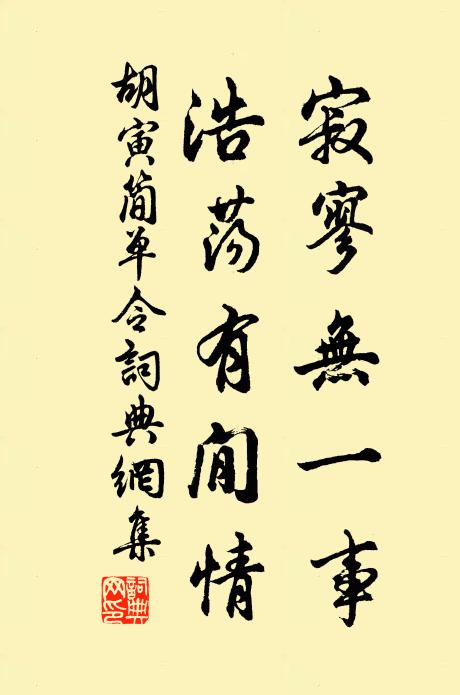 寂寥無一事
浩荡有閒情
胡寅简单令詞典網集
詞典网印